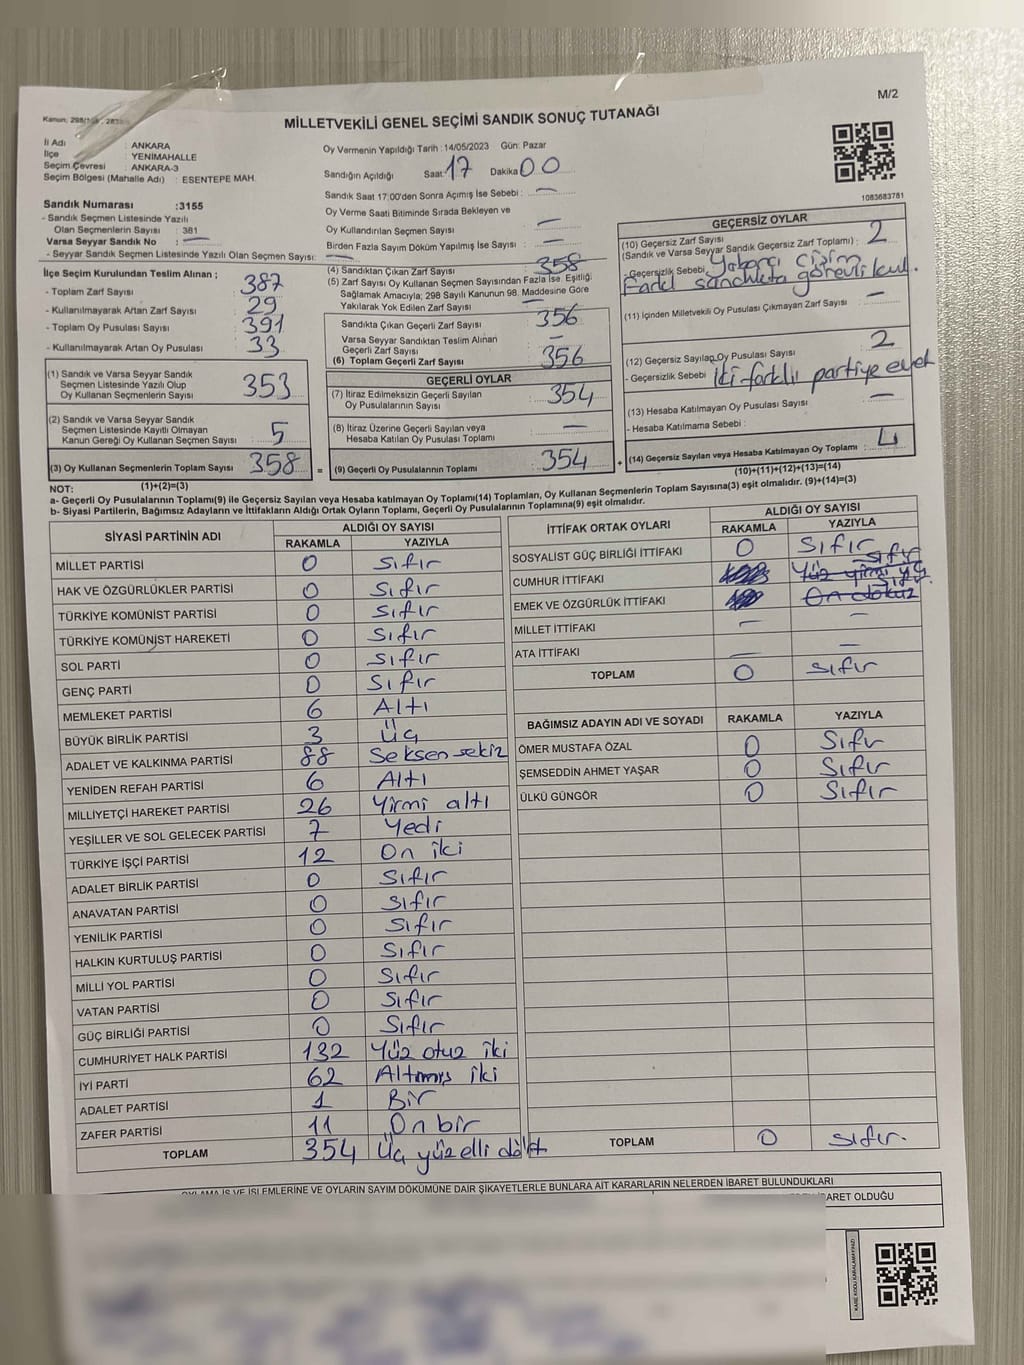 M/2
Kanun: 298/
MİLLETVEKİLİ GENEL SEÇİMİ SANDIK SONUÇ TUTANAĞI
İl Adı : ANKARA
İlçe : YENİMAHALLE
Seçim Çevresi : ANKARA-3
Seçim Bölgesi (Mahalle Adı) : ESENTEPE MAH.
Sandık Numarası :3155
- Sandık Seçmen Listesinde Yazılı
Olan Seçmenlerin Sayısı : 381
Varsa Seyyar Sandık No : —
- Seyyar Sandık Seçmen Listesinde Yazılı Olan Seçmen Sayısı: —
Oy Vermenin Yapıldığı Tarih :14/05/2023 Gün: Pazar
Sandığın Açıldığı Saat: 17 Dakika 00
Sandık Saat 17:00'den Sonra Açımış İse Sebebi : —
Oy Verme Saati Bitiminde Sırada Bekleyen ve
Oy Kullandırılan Seçmen Sayısı : —
Birden Fazla Sayım Döküm Yapılmış İse Sayısı : —
1083683781
İlçe Seçim Kurulundan Teslim Alınan ;
- Toplam Zarf Sayısı 387
- Kullanılmayarak Artan Zarf Sayısı 29
- Toplam Oy Pusulası Sayısı 391
- Kullanılmayarak Artan Oy Pusulası 33
(1) Sandık ve Varsa Seyyar Sandık
Seçmen Listesinde Yazılı Olup
Oy Kullanan Seçmenlerin Sayısı 353
(2) Sandık ve Varsa Seyyar Sandık
Seçmen Listesinde Kayıtlı Olmayan
Kanun Gereği Oy Kullanan Seçmen Sayısı 5
(3) Oy Kullanan Seçmenlerin Toplam Sayısı 358 =
(1)+(2)=(3)
(4) Sandıktan Çıkan Zarf Sayısı 358
(5) Zarf Sayısı Oy Kullanan Seçmen Sayısından Fazla İse, Eşitliği
Sağlamak Amacıyla; 298 Sayılı Kanunun 98. Maddesine Göre
Yakılarak Yok Edilen Zarf Sayısı —
Sandıkta Çıkan Geçerli Zarf Sayısı 356
Varsa Seyyar Sandıktan Teslim Alınan
Geçerli Zarf Sayısı —
(6) Toplam Geçerli Zarf Sayısı 356
GEÇERLİ OYLAR
(7) İtiraz Edilmeksizin Geçerli Sayılan
Oy Pusulalarının Sayısı 354
(8) İtiraz Üzerine Geçerli Sayılan veya
Hesaba Katılan Oy Pusulası Toplamı —
(9) Geçerli Oy Pusulalarının Toplamı 354 +
GEÇERSİZ OYLAR
(10) Geçersiz Zarf Sayısı
(Sandık ve Varsa Seyyar Sandık Geçersiz Zarf Toplamı) : 2
- Geçersizlik Sebebi Yabancı cisim
Farklı sandıkta görevli kul.
(11) İçinden Milletvekili Oy Pusulası Çıkmayan Zarf Sayısı —
(12) Geçersiz Sayılan Oy Pusulası Sayısı 2
- Geçersizlik Sebebi iki farklı partiye evet
(13) Hesaba Katılmayan Oy Pusulası Sayısı —
- Hesaba Katılmama Sebebi :
(14) Geçersiz Sayılan veya Hesaba Katılmayan Oy Toplamı : 4
(10)+(11)+(12)+(13)=(14)
NOT:
a- Geçerli Oy Pusulalarının Toplamı(9) ile Geçersiz Sayılan veya Hesaba katılmayan Oy Toplamı(14) Toplamları, Oy Kullanan Seçmenlerin Toplam Sayısına(3) eşit olmalıdır. (9)+(14)=(3)
b- Siyasi Partilerin, Bağımsız Adayların ve İttifakların Aldığı Ortak Oyların Toplamı, Geçerli Oy Pusulalarının Toplamına(9) eşit olmalıdır.
SİYASİ PARTİNİN ADI ALDIĞI OY SAYISI
RAKAMLA YAZIYLA
MİLLET PARTİSİ 0 Sıfır
HAK VE ÖZGÜRLÜKLER PARTİSİ 0 Sıfır
TÜRKİYE KOMÜNİST PARTİSİ 0 Sıfır
TÜRKİYE KOMÜNİST HAREKETİ 0 Sıfır
SOL PARTİ 0 Sıfır
GENÇ PARTİ 0 Sıfır
MEMLEKET PARTİSİ 6 Altı
BÜYÜK BİRLİK PARTİSİ 3 Üç
ADALET VE KALKINMA PARTİSİ 88 Seksen sekiz
YENİDEN REFAH PARTİSİ 6 Altı
MİLLİYETÇİ HAREKET PARTİSİ 26 Yirmi altı
YEŞİLLER VE SOL GELECEK PARTİSİ 7 Yedi
TÜRKİYE İŞÇİ PARTİSİ 12 On iki
ADALET BİRLİK PARTİSİ 0 Sıfır
ANAVATAN PARTİSİ 0 Sıfır
YENİLİK PARTİSİ 0 Sıfır
HALKIN KURTULUŞ PARTİSİ 0 Sıfır
MİLLİ YOL PARTİSİ 0 Sıfır
VATAN PARTİSİ 0 Sıfır
GÜÇ BİRLİĞİ PARTİSİ 0 Sıfır
CUMHURİYET HALK PARTİSİ 132 Yüz otuz iki
İYİ PARTİ 62 Altmış iki
ADALET PARTİSİ 1 Bir
ZAFER PARTİSİ 11 On bir
TOPLAM 354 Üç yüz elli dört
İTTİFAK ORTAK OYLARI ALDIĞI OY SAYISI
RAKAMLA YAZIYLA
SOSYALİST GÜÇ BİRLİĞİ İTTİFAKI 0 Sıfır
CUMHUR İTTİFAKI Yüz yirmi üç sıfır
EMEK VE ÖZGÜRLÜK İTTİFAKI On dokuz
MİLLET İTTİFAKI — —
ATA İTTİFAKI — —
TOPLAM 0 Sıfır
BAĞIMSIZ ADAYIN ADI VE SOYADI RAKAMLA YAZIYLA
ÖMER MUSTAFA ÖZAL 0 Sıfır
ŞEMSEDDİN AHMET YAŞAR 0 Sıfır
ÜLKÜ GÜNGÖR 0 Sıfır
TOPLAM 0 sıfır.
OYLAMA İŞ VE İŞLEMLERİNE VE OYLARIN SAYIM DÖKÜMÜNE DAİR ŞİKAYETLERLE BUNLARA AİT KARARLARIN NELERDEN İBARET BULUNDUKLARI
İBARET OLDUĞU